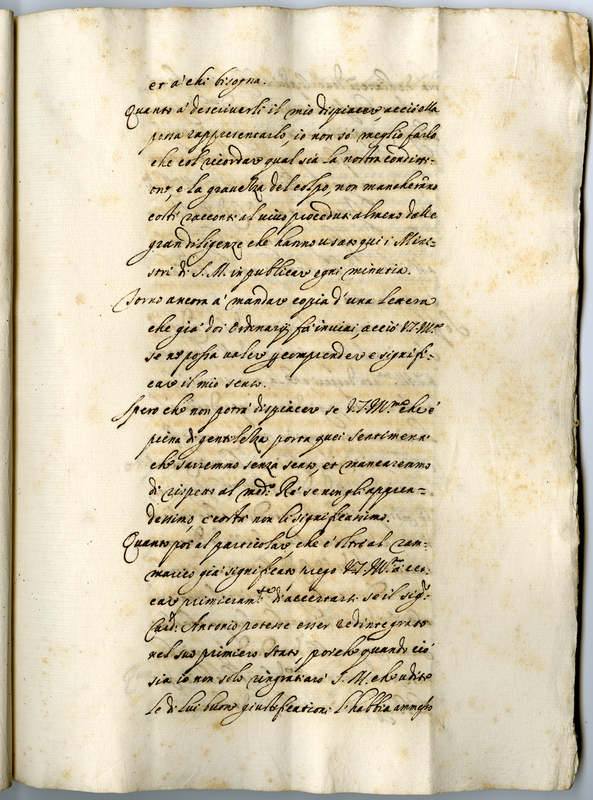 et à chi bisogna.
Quanto à descriverli il mio dispiacer, acciò ella
possa rappresentarlo, io non sò meglio farlo
che col ricordar qual sia la nostra conditi-
one, e la gravezza del colpo, non mancheranno
costì racconti al vivo proceduti almeno dalle
gran diligenze che hanno usato qui i Mini-
stri di S. M. in publicar ogni minutia.
Torno ancora à mandar copia d'una lettera
che già doi ordinarij fà inviai, acciò V. S. Ill.ma
se ne possa valer per comprender e signifi-
car il mio senso.
Spero che non potrà dispiacer se V. S. Ill.ma che è
piena di gentilezza porta quei sentimenti
che saremmo senza senso, et mancaremmo
di rispetto al med.o Rè se non gli appren-
dessimo, e costì non li significassimo.
Quanto poi al particolar, che è oltre al ram-
marico già significato prego V. S. Ill.ma à cer-
car primieram.te d'accertarsi se il sig.r
Card. Antonio potesse esser redintegrato
nel suo primiero stato, perche quando ciò
sia io non solo ringratiarò S. M. che udite
le di lui buone giustificationi l'habbia ammesso